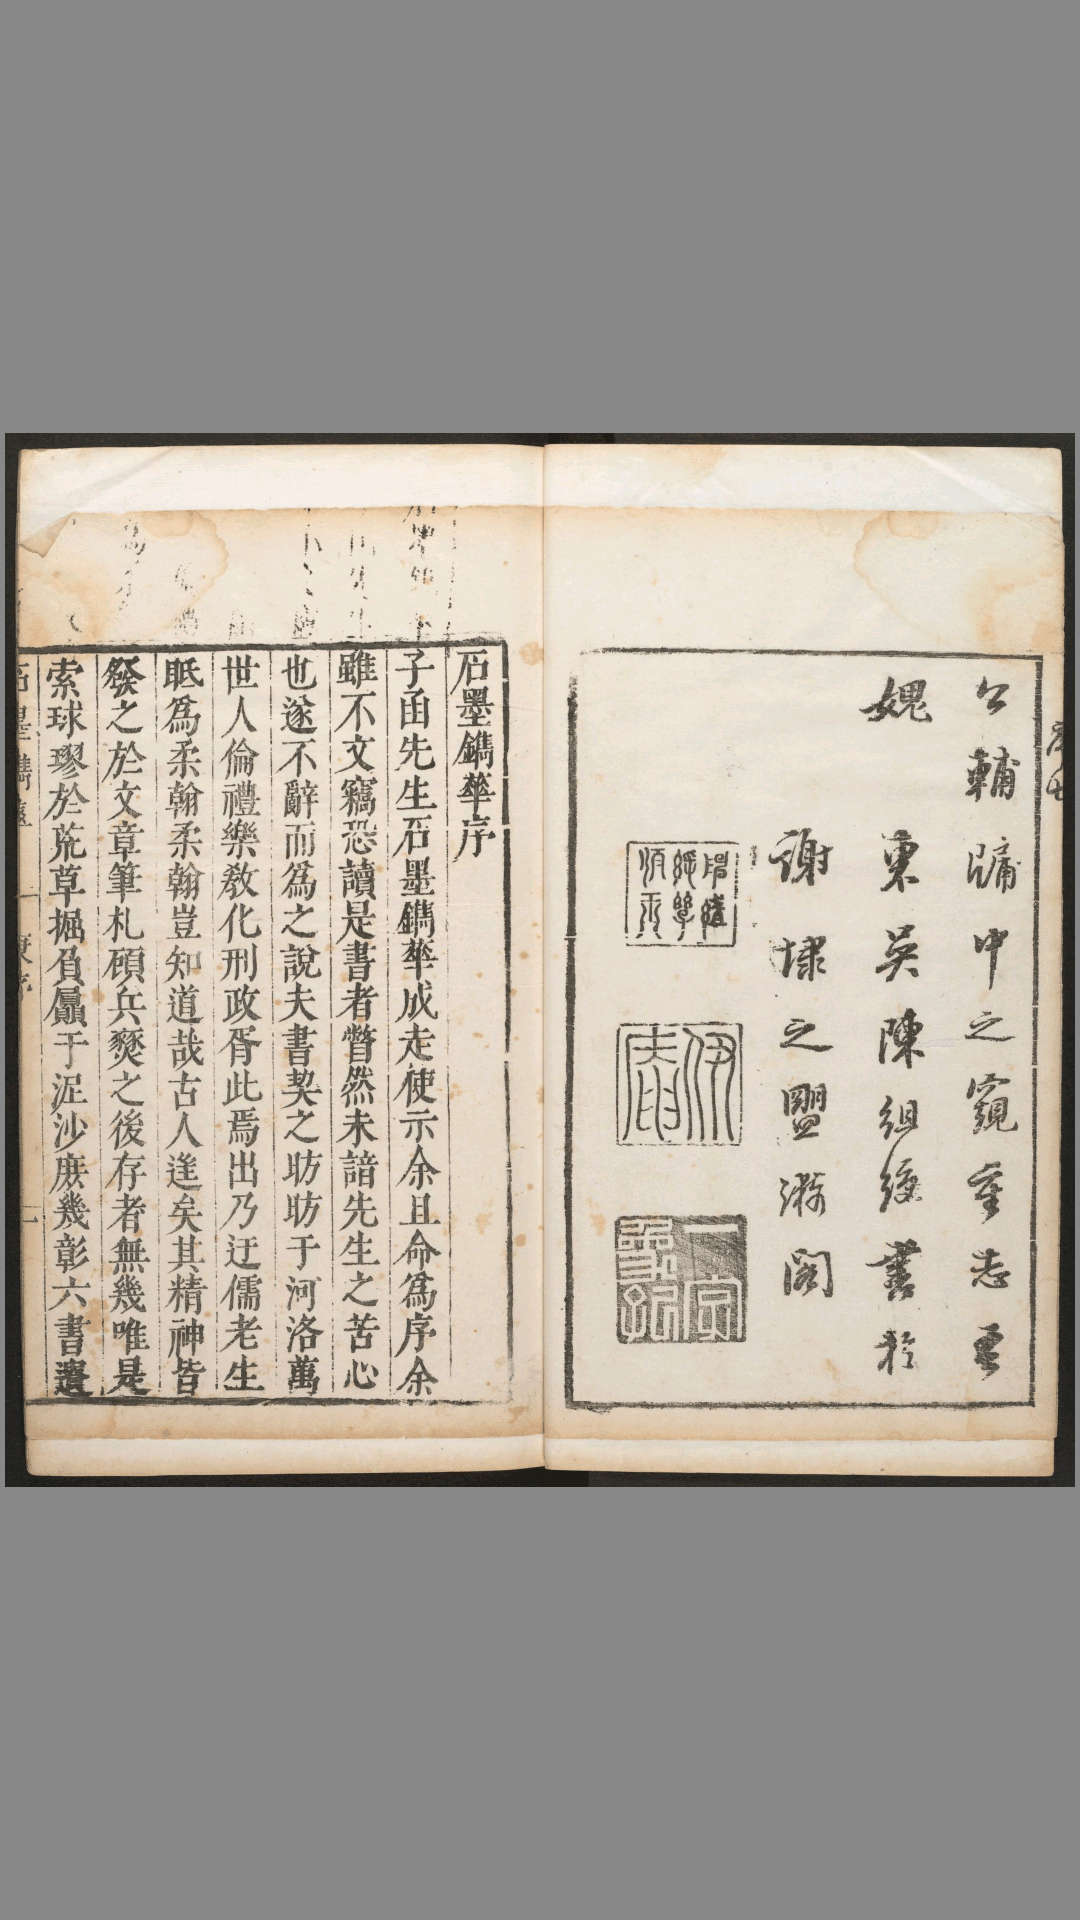 公輔牖中之窺幸志吾
媿
東吳陳組綬書於
謝埭之盟漪閣
石墨鐫華序
子函先生石墨鐫華成走使示余且命爲序余
雖不文竊恐讀是書者瞥然未諳先生之苦心
也遂不辭而爲之說夫書契之昉昉于河洛萬
世人倫禮樂敎化刑政胥此焉出乃迂儒老生
眂爲柔翰柔翰豈知道哉古人逢矣其精神皆
發之於文章筆札碩兵燹之後存者無幾唯是
索球璆於荒草掘負屭于泥沙庶幾彰六書遺